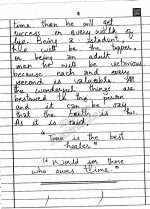 time then he will get
success in every walk of
life. Being a student, he
will be the topper,
or being an adult
man he will be victorious
because each and every
second is valuable. All
the wonderful things are
bestowed to the person
and it can be say
that the truth is this.
As it is said
"Time is the best
healer"
"World for those
who owns time"